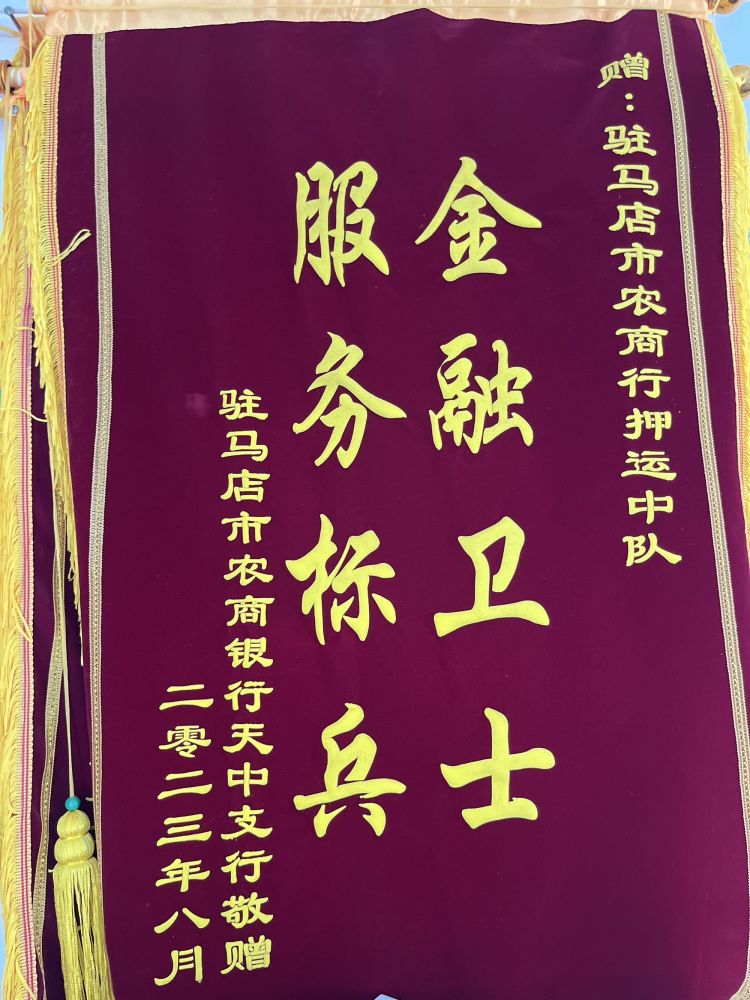 赠：驻马店市农商行押运中队
金融卫士
服务标兵
驻马店市农商银行天中支行敬赠
二零二三年八月